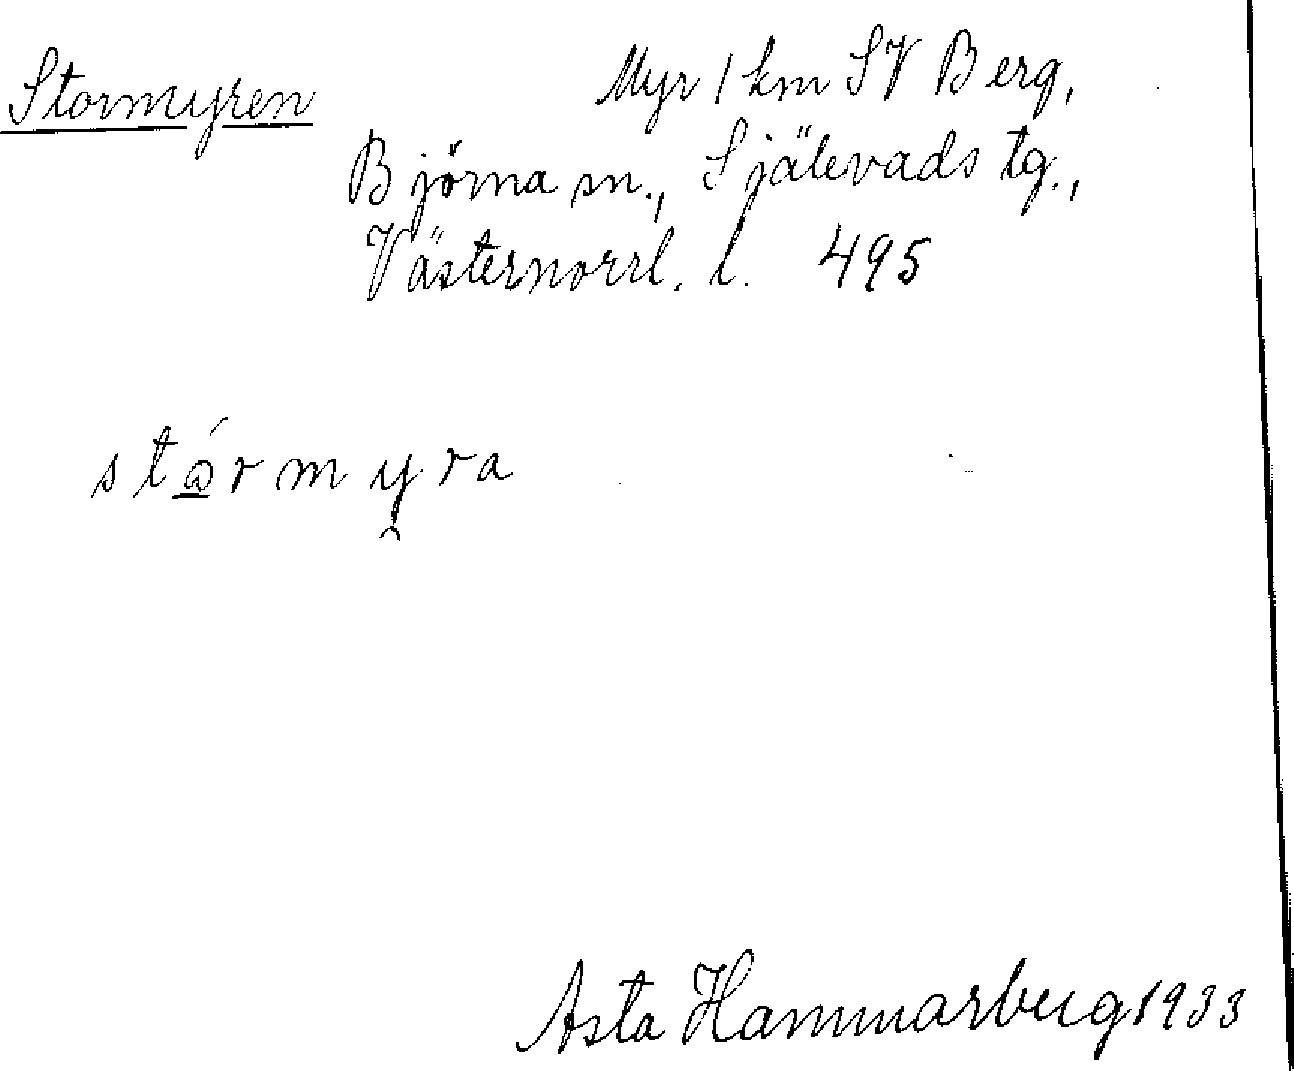 Stormyren Myr 1 km SV Berg,
Björna sn., Själevads tg.,
Västernorrl. l. 495
stórmyra
Asta Hammarberg 1933